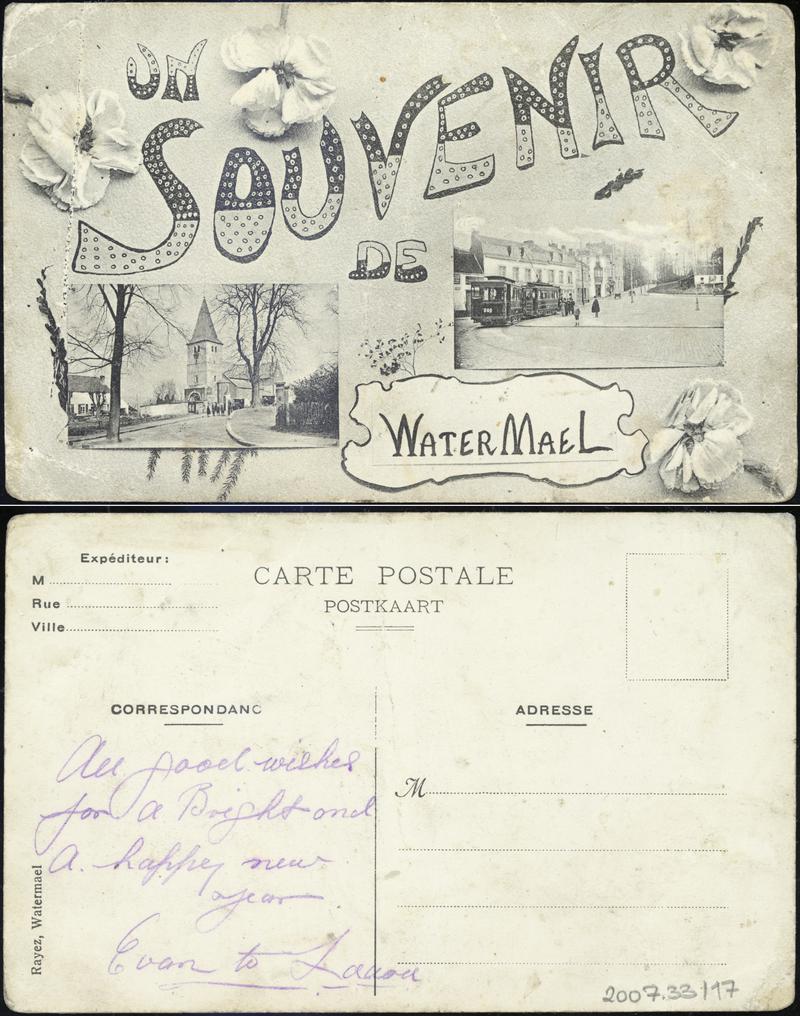 UN
SOUVENIR
DE
WATERMAEL
Expéditeur:
M
Rue
Ville
CARTE POSTALE
POSTKAART
CORRESPONDANC
ADRESSE
M
All good wishes
for a Bright and
A. happy new
year
Evan to
Rayez, Watermael
2007.33/17